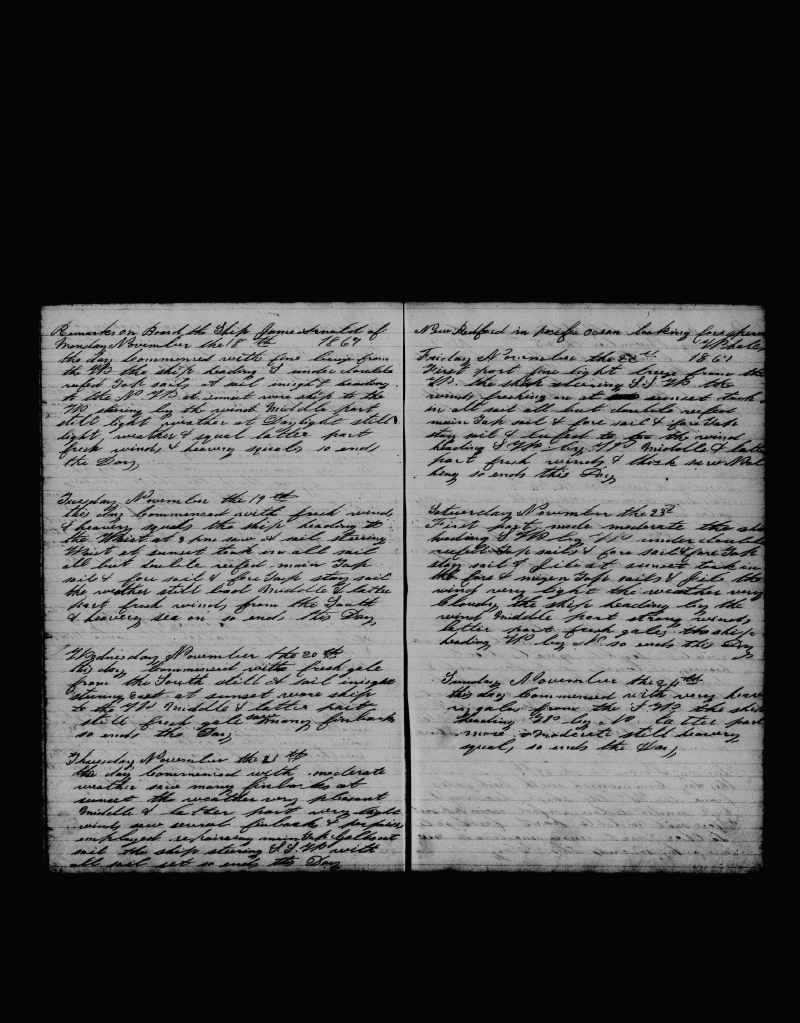 Remarks on Board the Ship James Arnold of
Monday November the 18 th 1867
the day Commenced with fine breeze from
the W the ship heading S under double
refed Top sails A sail insight heading
to the N W at sunset wore ship to the
W stering by the wind Middle part
still light weather at Daylight still
light weather & squal latter part
fresh winds & heavery squals so ends
the Day
Tuesday November the 19 th
this day Commenced with fresh winds
& heavery squals the ship heading to
the West at 3 pm saw A sail steering
West at sunset took in all sail
all but double refed main Top
sail & fore sail & fore Top stay sail
the wether still bad Middle & latter
part fresh winds from the South
& heavery sea on so ends this Day
Wednesday November the 20 th
this day Commenced with fresh gale
from the South still A sail insight
stering East at sunset wore ship
to the W Middle & latter part
still fresh gale saw many finback
so ends the Day
Thursday November the 21 th
the day Commenced with moderate
weather saw many finbacks at
sunset the weather very pleasant
Middle & latter part very light
winds saw several finback &
employed repairing main Top Gallant
sail the ship steering S.S.W with
all sail set so ends the Day
New Bedford in pacific Ocean looking for sperm
Whales
Friday November the 22 1867
First part fine light breeze from the
W the ship steering S.S W the
wind freshing on at sunset took
in all sail all but double reefed
main Top sail & fore sail & fore Top
stay sail & to the wind
heading S W by W Middle & latter
part fresh winds & thick
so ends this Day
Saturday November the 23
First part mode moderate the ship
heading S W by W under double
reefed Top sails & fore sail & fore Top
stay sail & Jib at sunset took in
the fore & mizen Top sails & Jib the
wind very light the weather very
cloudy the ship heading by the
wind middle part strong winds
latter part fresh gales the ship
heading W by N so ends this Day
Sunday November the 24 th
this day Commenced with very heavery
gales from the S W the ship
heading W by N latter part
more moderate still heavery
squals so ends the Day